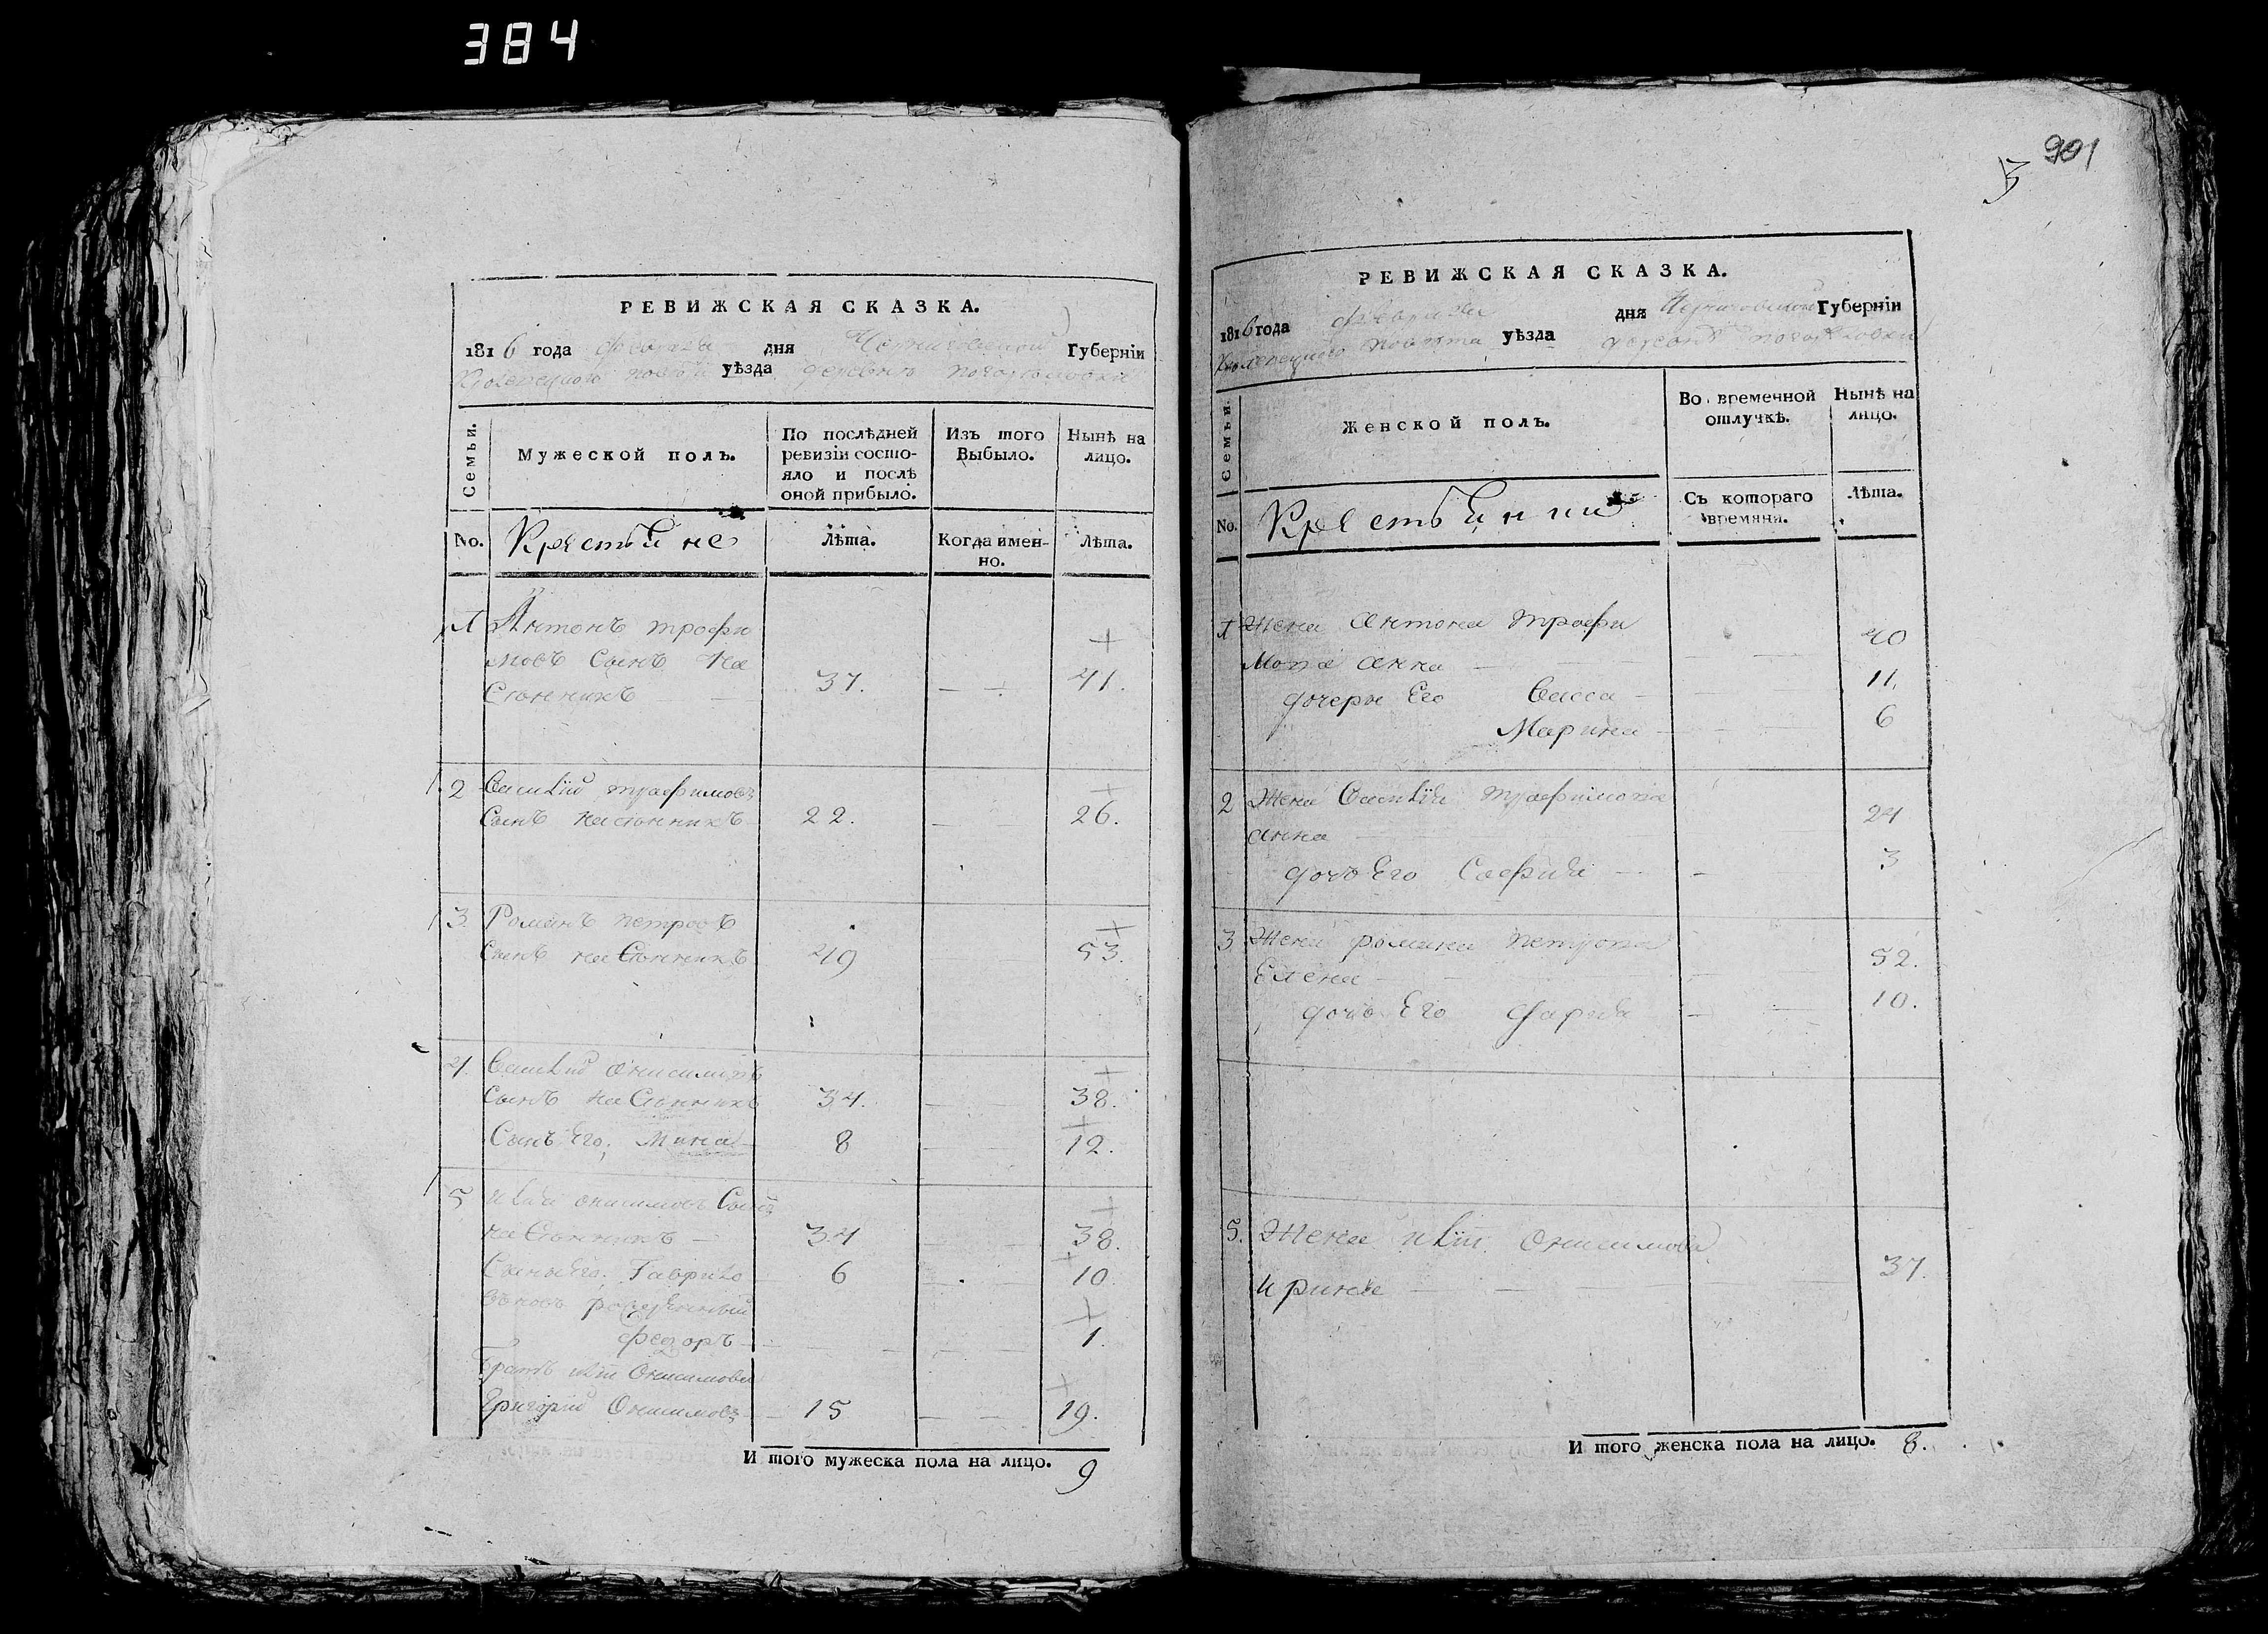 384
РЕВИЖСКАЯ СКАЗКА.
1816 года февраля дня Черниговской Губерніи
Кролевецкого повета уѣзда деревни
Семьи.
Мужеской полъ.
По послѣдней ревизіи состо-
яло и послѣ
оной прибыло.
Изъ того
Выбыло.
Нынѣ на
лицо.
No.
Крестьяне
Лѣта.
Когда имен-
но.
Лѣта.
1 Антонъ трофи
мовъ Сынъ На
Сюнникъ — 37. — — 41.
2 Василій трофимовъ
Сынъ насюнникъ 22. — 26.
3. Романъ петровъ
Сынъ наСюнникъ 49 53.
4. Василий онисимовъ
Сынъ наСюнникъ 34. — 38.
Сынъ Его, Мина — 8 — 12.
5 онисимовъ Сынъ
наСюнникъ — 34 — 38.
Сыны Его. Гаврило 6 — 10.
вновь рожденный
федоръ — 1.
братъ Онисимова
Григорій Онисимовъ — 15 — — 19.
И того мужеска пола на лицо. 9
901
РЕВИЖСКАЯ СКАЗКА.
1816 года февраля дня Черниговской Губерніи
Кролевецкого повета уѣзда
Семьи.
Женской полъ.
Во временной
отлучкѣ.
Нынѣ на
лицо.
No.
Крестьянки
Съ котораго
времяни.
Лѣта.
1 Жена Антона трофи
мова анна — 40
дочери Его Васса — 11.
Марина — 6
2 Жена Василія трофимова
анна — 24
дочь Его Софія — 3
3 Жена романа петрова
Елена — 52.
дочь Его дарія — 10.
5. Жена Онисимова
ирина — 37.
И того женска пола на лицо. 8.